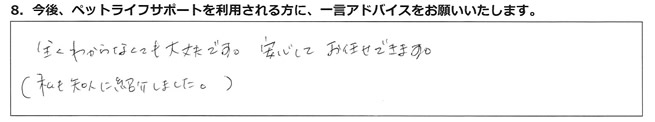 8. 今後、ペットライフサポートを利用される方に、一言アドバイスをお願いいたします。
よくわからなくても大丈夫です。安心してお任せできます。
(私も知人に紹介しました。)